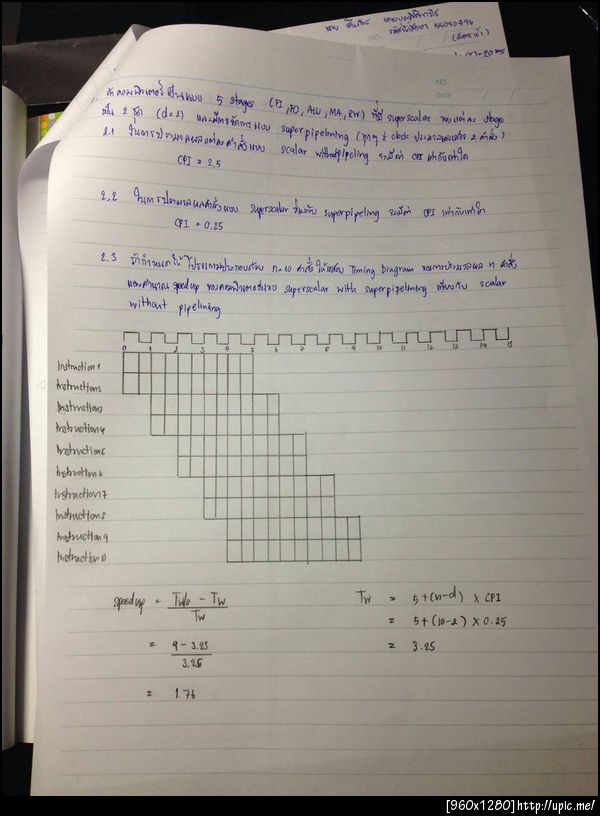 55050496
NO.
DATE
5 stages (FI, FO, ALU, MA, RW) ที่มี superscalar ของแต่ละ stage
เป็น 2 ชุด (d=2) และมีการจัดการแบบ superpipelining (ทุกๆ 1 clock ประมวลผลเสร็จ 2 คำสั่ง)
2.1 ในการประมวลผลแต่ละคำสั่งแบบ scalar จะมีค่า CPI เท่ากับเท่าใด
CPI = 2.5
2.2 ในการประมวลผลคำสั่งแบบ superscalar ร่วมกับ superpipeling จะมีค่า CPI เท่ากับเท่าใด
CPI = 0.25
2.3 ถ้ากำหนดให้ โปรแกรมประกอบด้วย n=10 คำสั่ง ให้แสดง Timing Diagram ของการประมวลผล n คำสั่ง
และคำนวณ speedup ของคอมพิวเตอร์แบบ superscalar with superpipelining เทียบกับ scalar
without pipelining
0 1 2 3 4 5 6 7 8 9 10 11 12 13 14 15
Instruction 1
Instruction 2
Instruction 3
Instruction 4
Instruction 5
Instruction 6
Instruction 7
Instruction 8
Instruction 9
Instruction 10
speedup = Tw/o - Tw
Tw
= 9 - 3.25
3.25
= 1.76
Tw = 5+(n-d) × CPI
= 5+(10-2) × 0.25
= 3.25
[960x1280]http://upic.me/